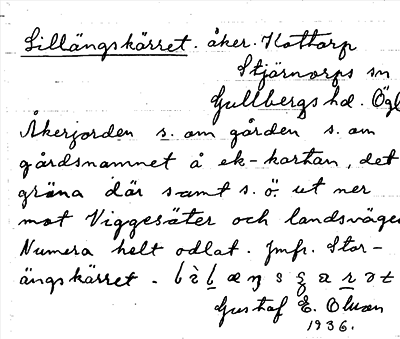 Lillängskärret. åker. Kottorp
Stjärnorps sn
Gullbergs hd. Ögl
Åkerjorden s. om gården s. om
gårdsnamnet å ek-kartan, det
gröna där samt s.ö. ut ner
mot Viggesäter och landsväge
Numera helt odlat. Jmfr. Stor-
ängskärret -
Gustaf E. Olson
1936.